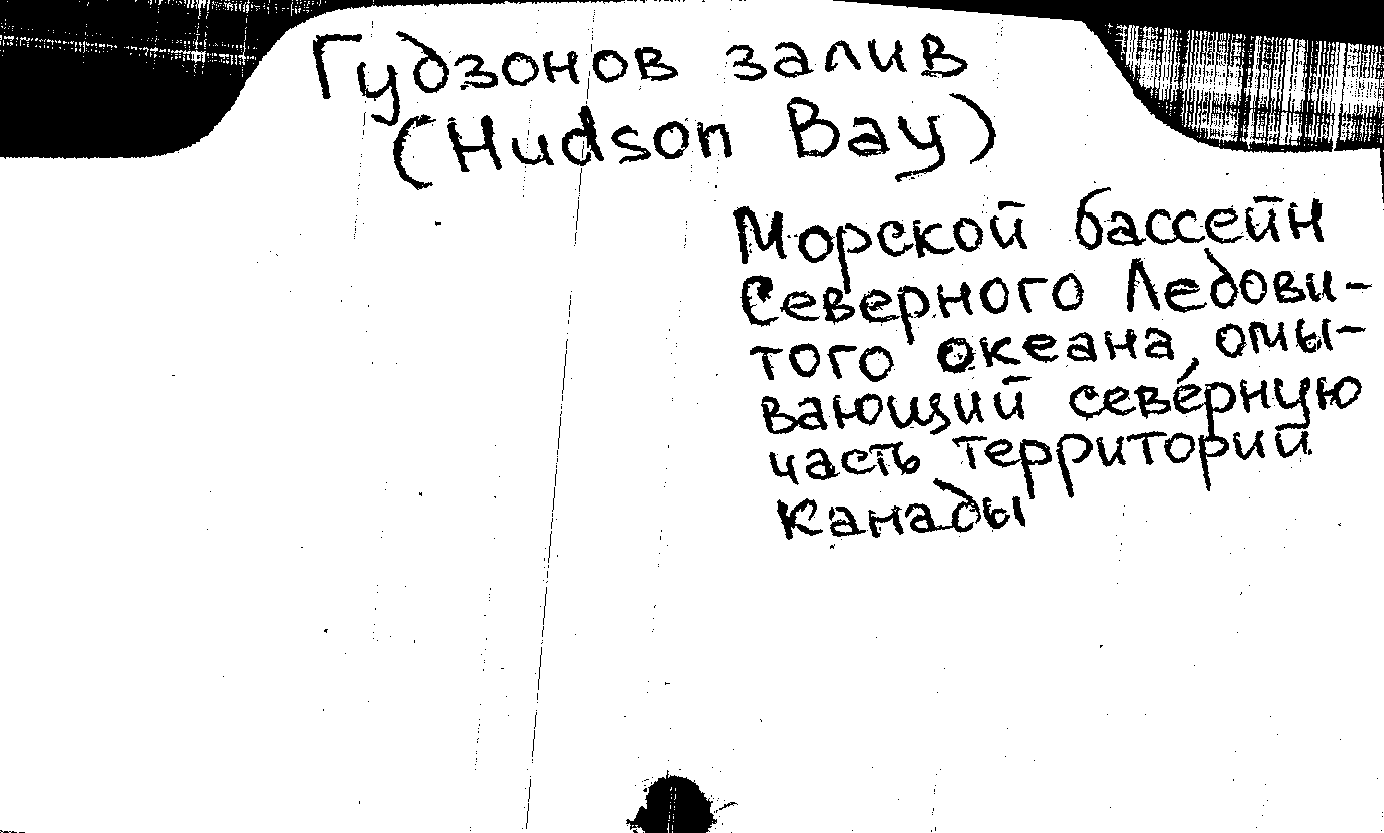 Гудзонов залив
(Hudson Bay)
Морской бассейн
Северного Ледови-
того океана, омы-
вающий северную
часть территорий
Канады